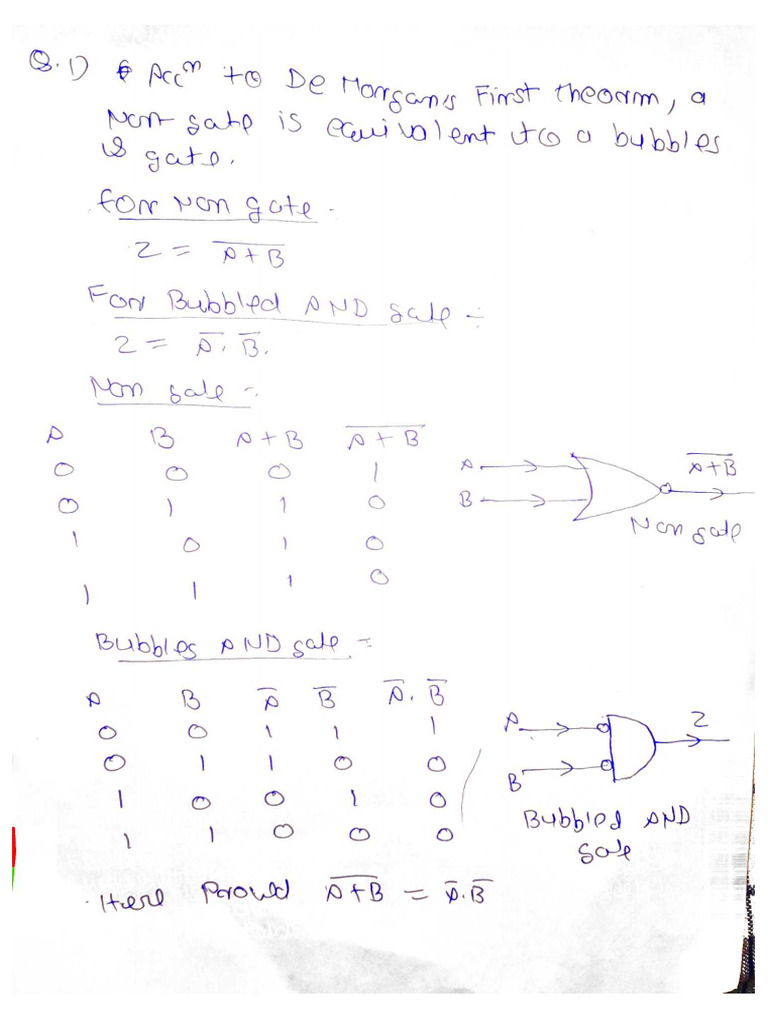 Q.1) Accⁿ to De Morgan's First theorm, a
Nor gate is equivalent to a bubbles
& gate.
for Nor gate -
Z = \overline{A+B}
For Bubbled AND gate :-
Z = \overline{A}. \overline{B}.
Nor gate :-
A B A+B \overline{A+B}
0 0 0 1
0 1 1 0
1 0 1 0
1 1 1 0
A
B
\overline{A+B}
Nor gate
Bubbles AND gate =
A B \overline{A} \overline{B} \overline{A}. \overline{B}
0 0 1 1 1
0 1 1 0 0
1 0 0 1 0
1 1 0 0 0
A
B
Z
Bubbled AND
gate
Here Proud \overline{A+B} = \overline{A}.\overline{B}